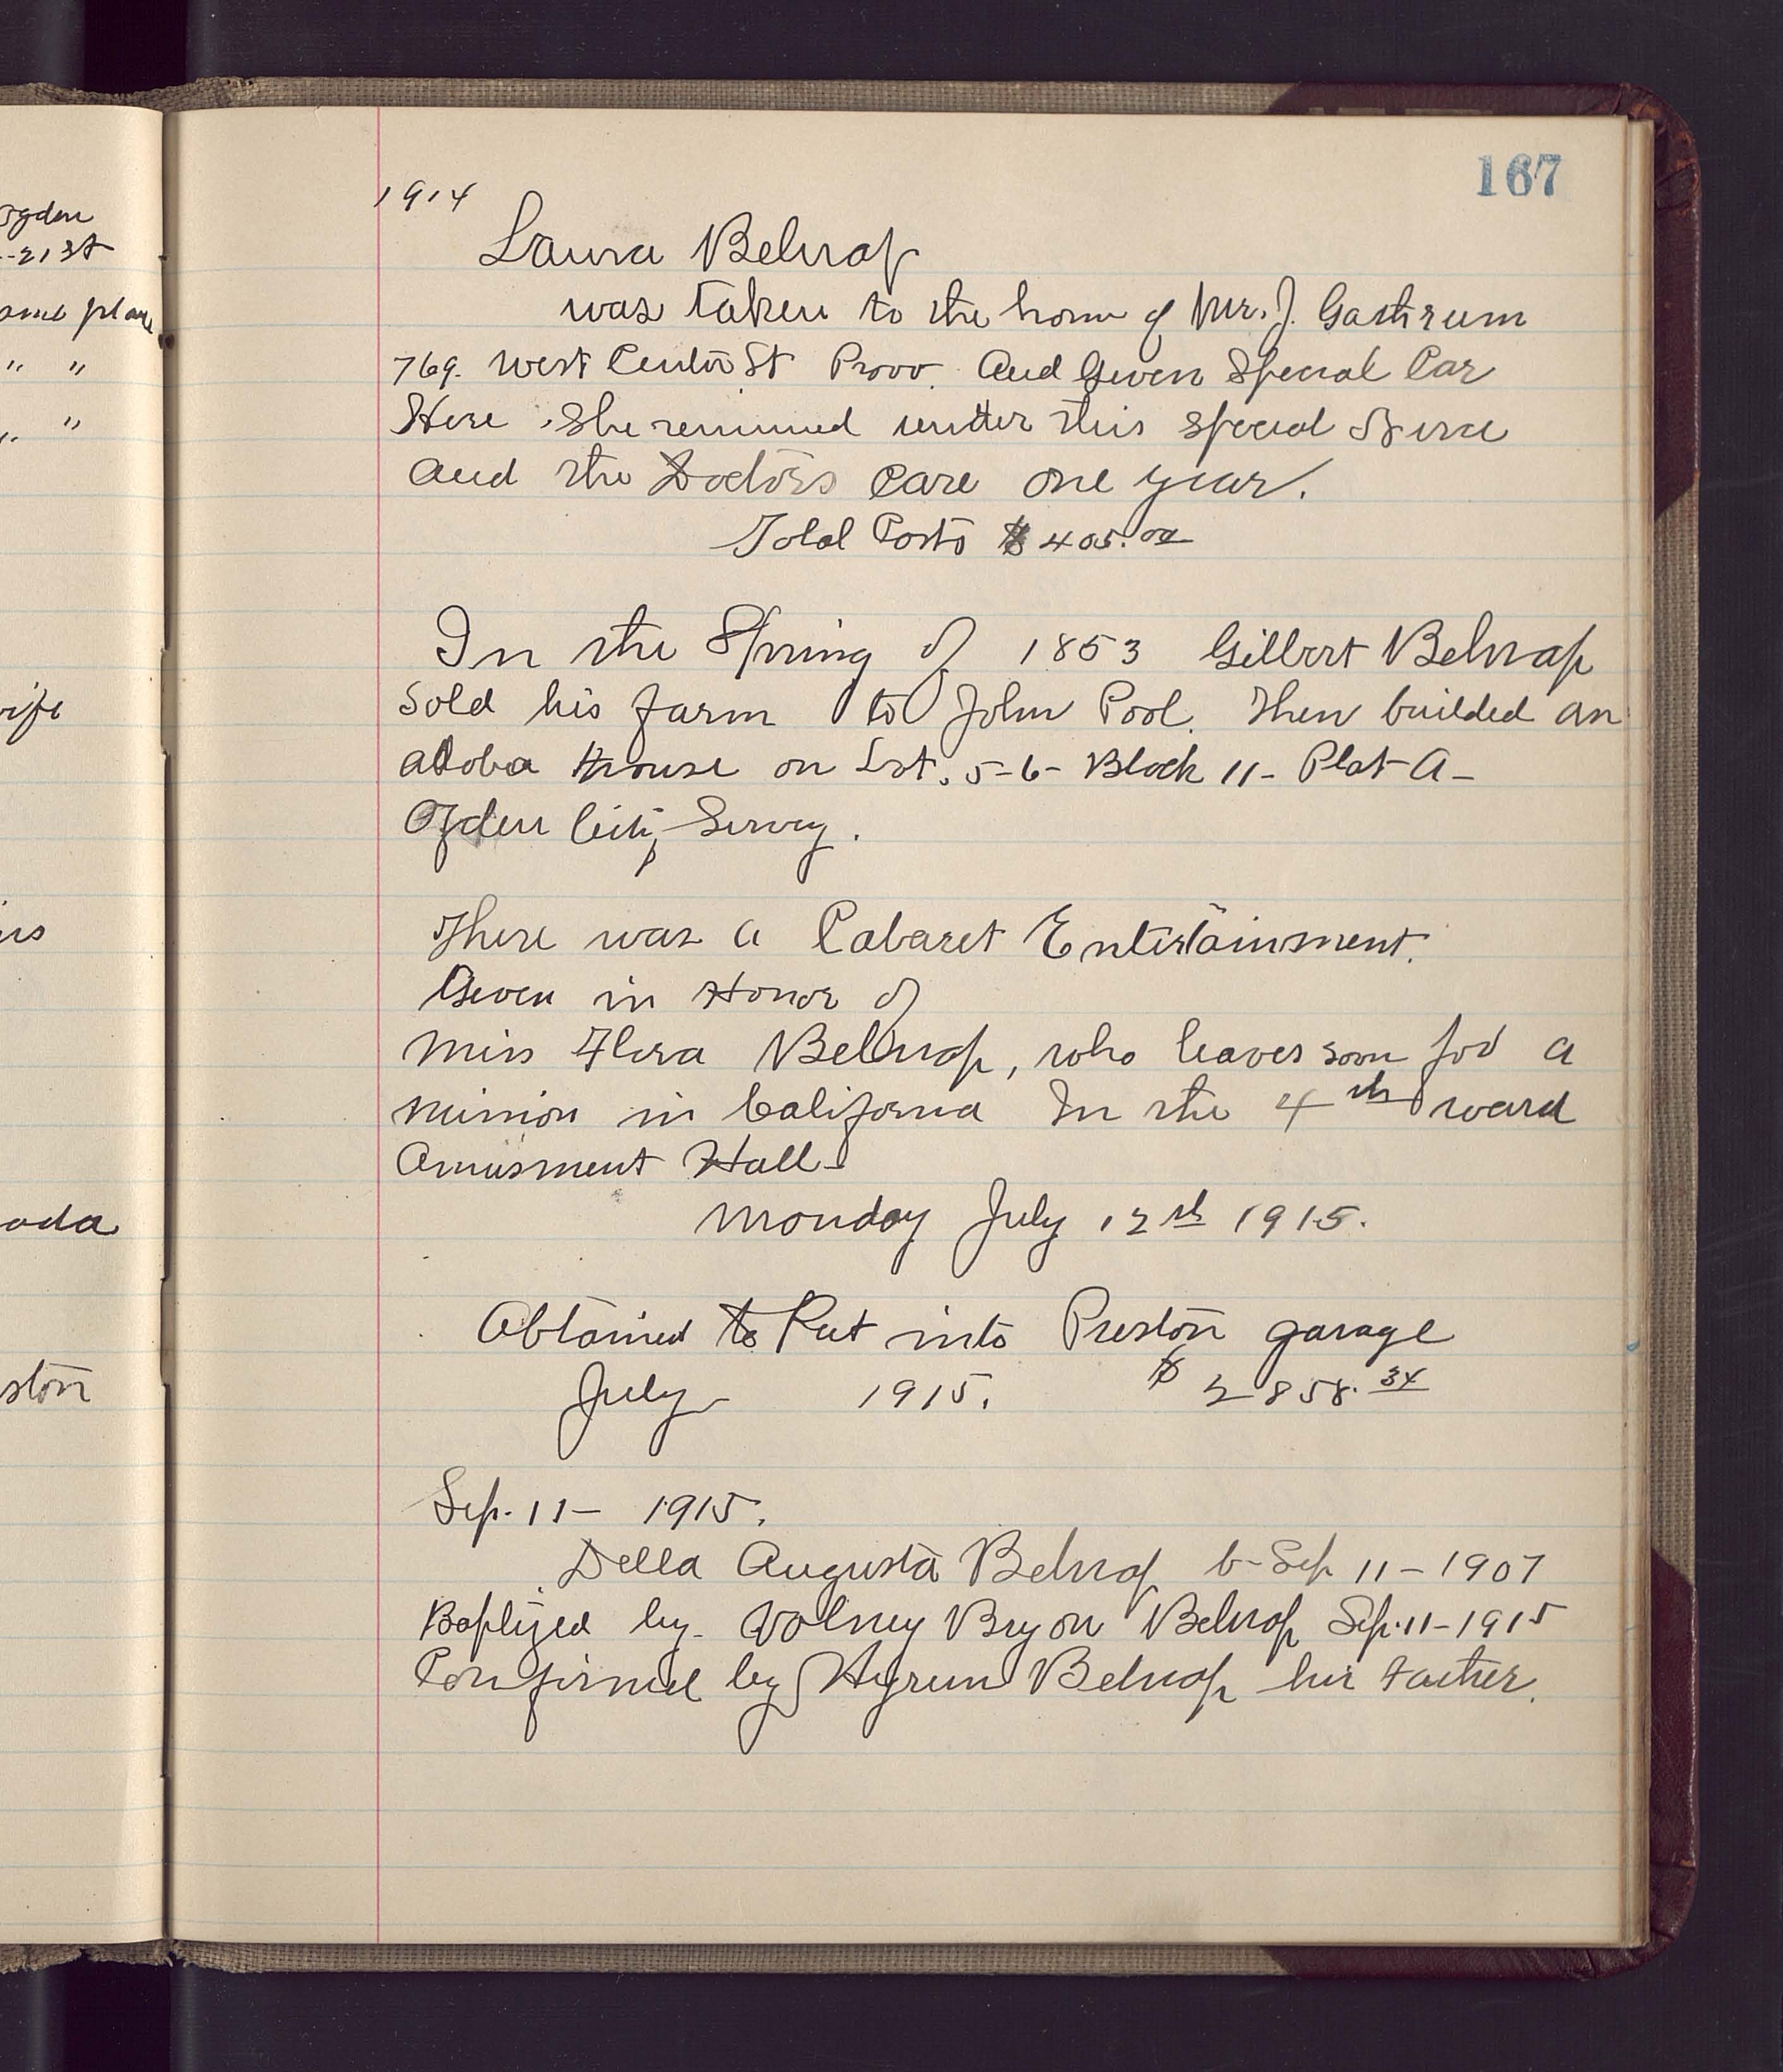 Ogden
21st
same place
" "
" "
wife
ada
ston
167
1914
Laura Belnap
was taken to the home of Mr. J. Gastrum
769. West Center St Provo. And Given Special Car
Here. She remined under this special
and the Doctors care one year.
Total Costs $405.00
In the Spring of 1853 Gilbert Belnap
sold his farm to John Pool. Then builded an
adoba house on Lot. 5-6- Block 11- Plat A-
Ogden City Servey.
There was a Cabaret Entertainment.
Given in Honor of
Miss Flora Belnap, who leaves soon for a
mission in California In the 4th ward
Amusment Hall-
Monday July 12th 1915.
Obtained to Put into Preston garage
July 1915. $2858.34
Sep. 11- 1915.
Della Augusta Belnap b- Sep 11-1907
Baptized by Volney Bryon Belnap Sep. 11-1915
Confirmed by Hyrum Belnap her Father.